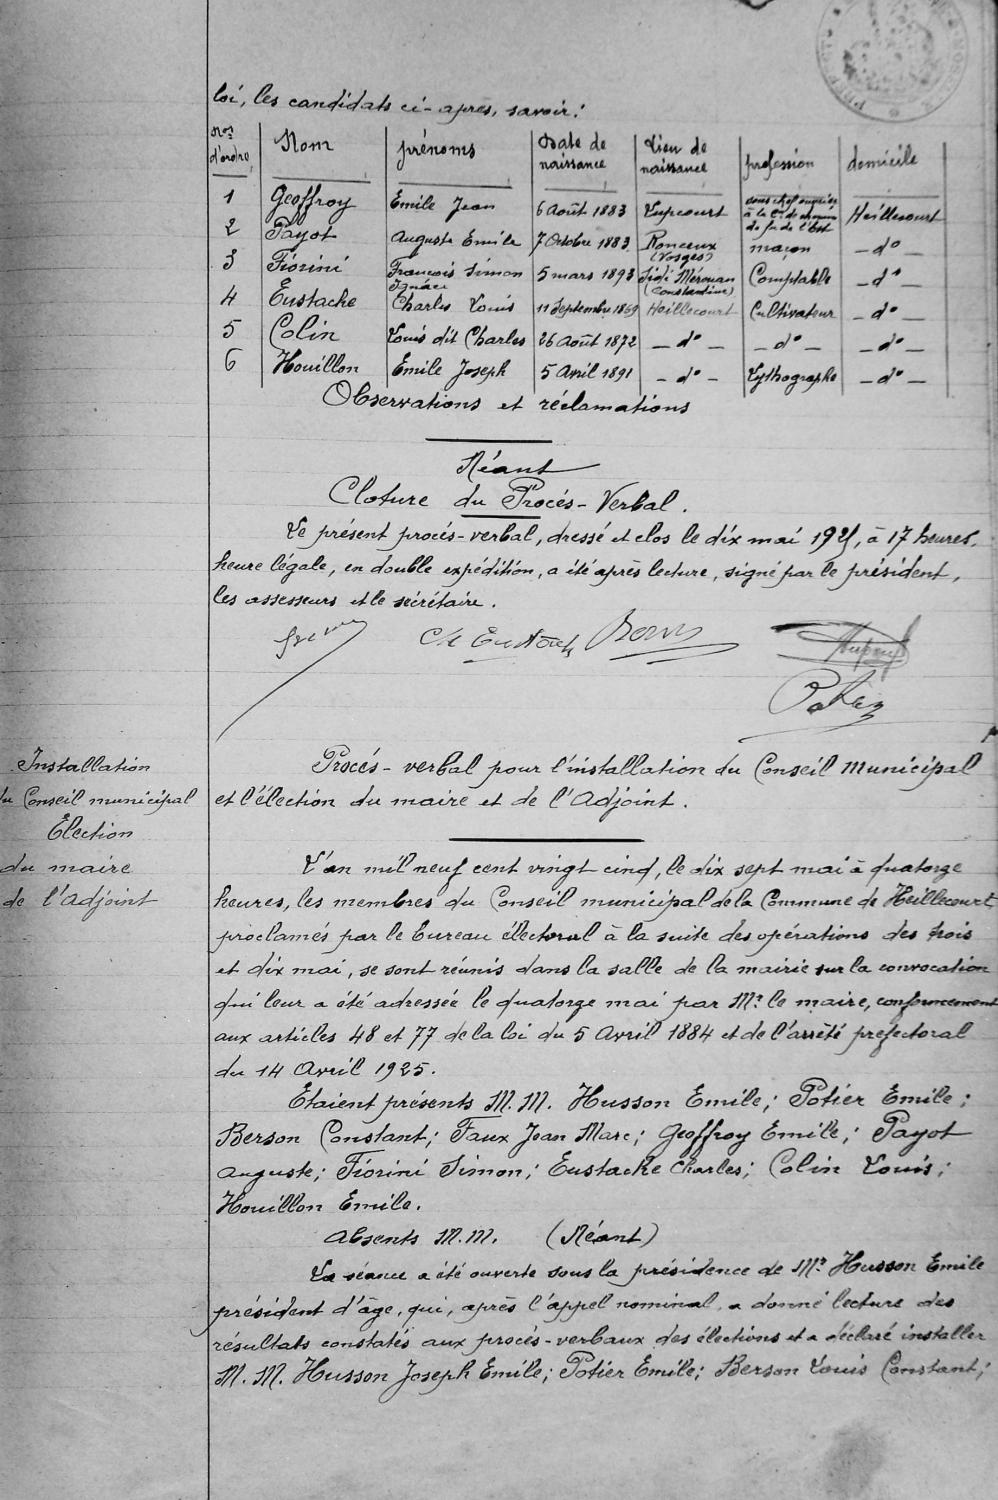 loi, les candidats ci-après, savoir:
Nos d'ordre | Nom | prénoms | Date de naissance | Lieu de naissance | profession | domicile
1 | Geoffroy | Emile Jean | 6 Août 1883 | Lupcourt | sous chef ouvrier à la Cie de chemin de fer de l'Est | Heillecourt
2 | Payot | Auguste Emile | 7 Octobre 1883 | Ronceux (Vosges) | maçon | - d° -
3 | Fiorini | François Simon Ignace | 5 mars 1893 | Sidi Mérouan (Constantine) | Comptable | - d° -
4 | Eustache | Charles Louis | 11 Septembre 1869 | Heillecourt | Cultivateur | - d° -
5 | Colin | Louis dit Charles | 26 Août 1872 | - d° - | - d° - | - d° -
6 | Houillon | Emile Joseph | 5 Avril 1891 | - d° - | Lythographe | - d° -
Observations et réclamations
Néant
Cloture du Procés-Verbal.
Le présent procés-verbal, dressé et clos le dix mai 1925, à 17 heures,
heure légale, en double expédition, a été après lecture, signé par le président,
les assesseurs et le secrétaire.
Ch Eustache
Installation
du Conseil municipal
Élection
du maire
de l'adjoint
Procés-verbal pour l'installation du Conseil Municipal
et l'élection du maire et de l'Adjoint.
L'an mil neuf cent vingt cinq, le dix sept mai à quatorze
heures, les membres du Conseil municipal de la Commune de Heillecourt
proclamés par le bureau électoral à la suite des opérations des trois
et dix mai, se sont réunis dans la salle de la mairie sur la convocation
qui leur a été adressée le quatorze mai par Mr le maire, conformément
aux articles 48 et 77 de la loi du 5 Avril 1884 et de l'arrêté préfectoral
du 14 Avril 1925.
Etaient présents M.M. Husson Emile; Potier Emile;
Berson Constant; Faux Jean Marc; Geoffroy Emile; Payot
Auguste; Fiorini Simon; Eustache Charles; Colin Louis;
Houillon Emile.
Absents M.M. (Néant)
La séance a été ouverte sous la présidence de Mr Husson Emile
président d'âge, qui, après l'appel nominal, a donné lecture des
résultats constatés aux procés-verbaux des élections et a déclaré installer
M.M. Husson Joseph Emile; Potier Emile; Berson Louis Constant;